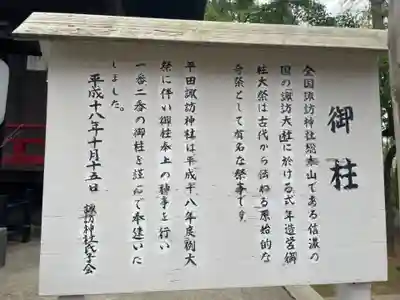 御柱
全国諏訪神社総本山である信濃の
国の諏訪大社に於ける式年造営御
柱大祭は古代から伝わる原始的な
奇祭として有名な祭事です。
平田諏訪神社は平成十八年度例大
祭に伴い御柱奉上の神事を行い
一番二番の御柱を謹んで奉建いた
しました。
平成十八年十月十五日
諏訪神社氏子会